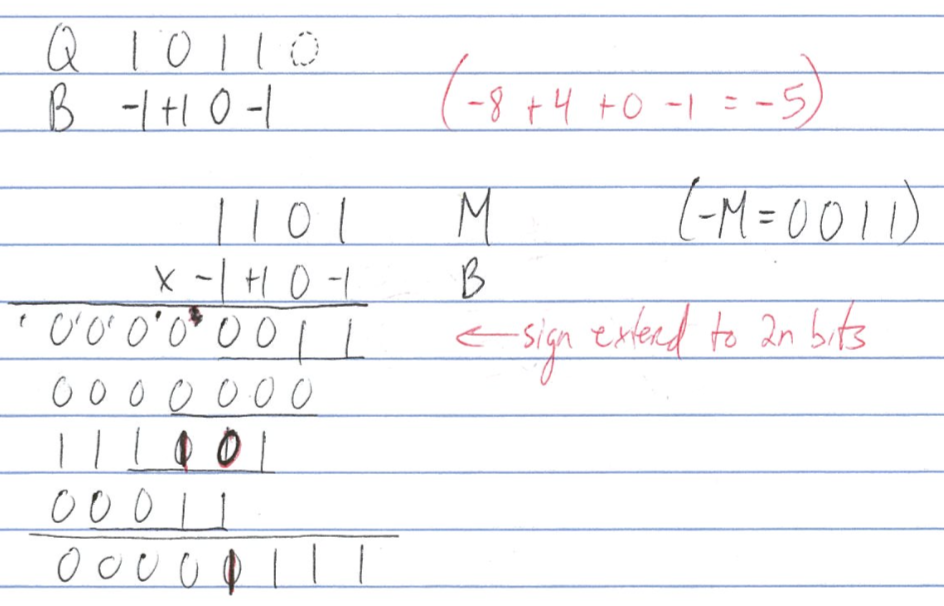 Q 1 0 1 1 0
B -1 +1 0 -1 (-8 + 4 + 0 -1 = -5)
1 1 0 1 M (-M = 0 0 1 1)
x -1 +1 0 -1 B
0 0 0 0 0 0 1 1 ← sign extend to 2n bits
0 0 0 0 0 0 0
1 1 1 1 0 1
0 0 0 1 1
0 0 0 0 1 1 1 1